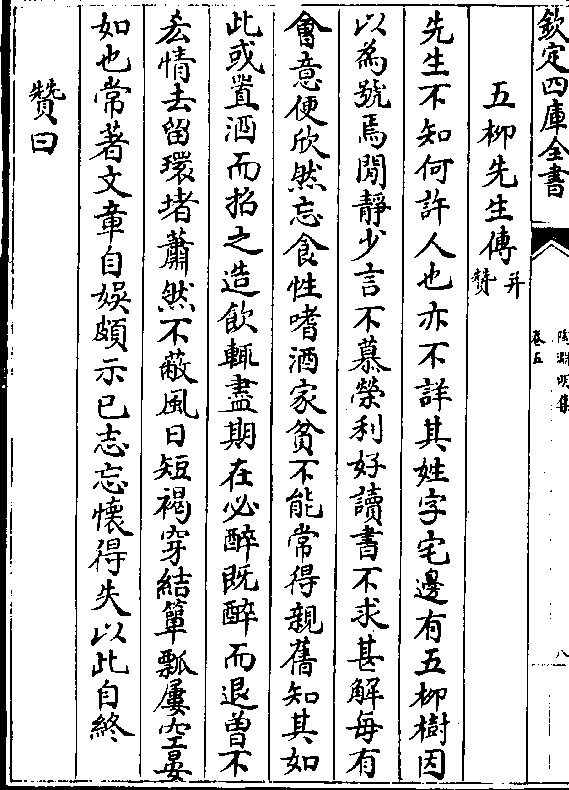 欽定四庫全書
陶淵明集
卷五
八
五柳先生傳并贊
先生不知何許人也亦不詳其姓字宅邊有五柳樹因
以為號焉閒靜少言不慕榮利好讀書不求甚解毎有
會意便欣然忘食性嗜酒家貧不能常得親舊知其如
此或置酒而招之造飲輒盡期在必醉既醉而退曽不
吝情去留環堵蕭然不蔽風日短褐穿結簞瓢屢空晏
如也常著文章自娛頗示已志忘懷得失以此自終
贊曰